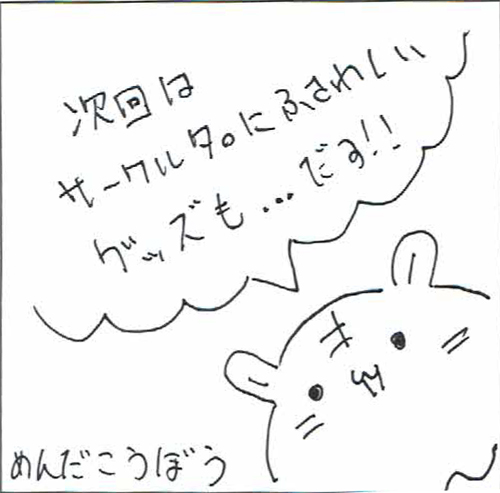 次回は
サークル名にふさわしい
グッズも...だす!!
めんだこうぼう